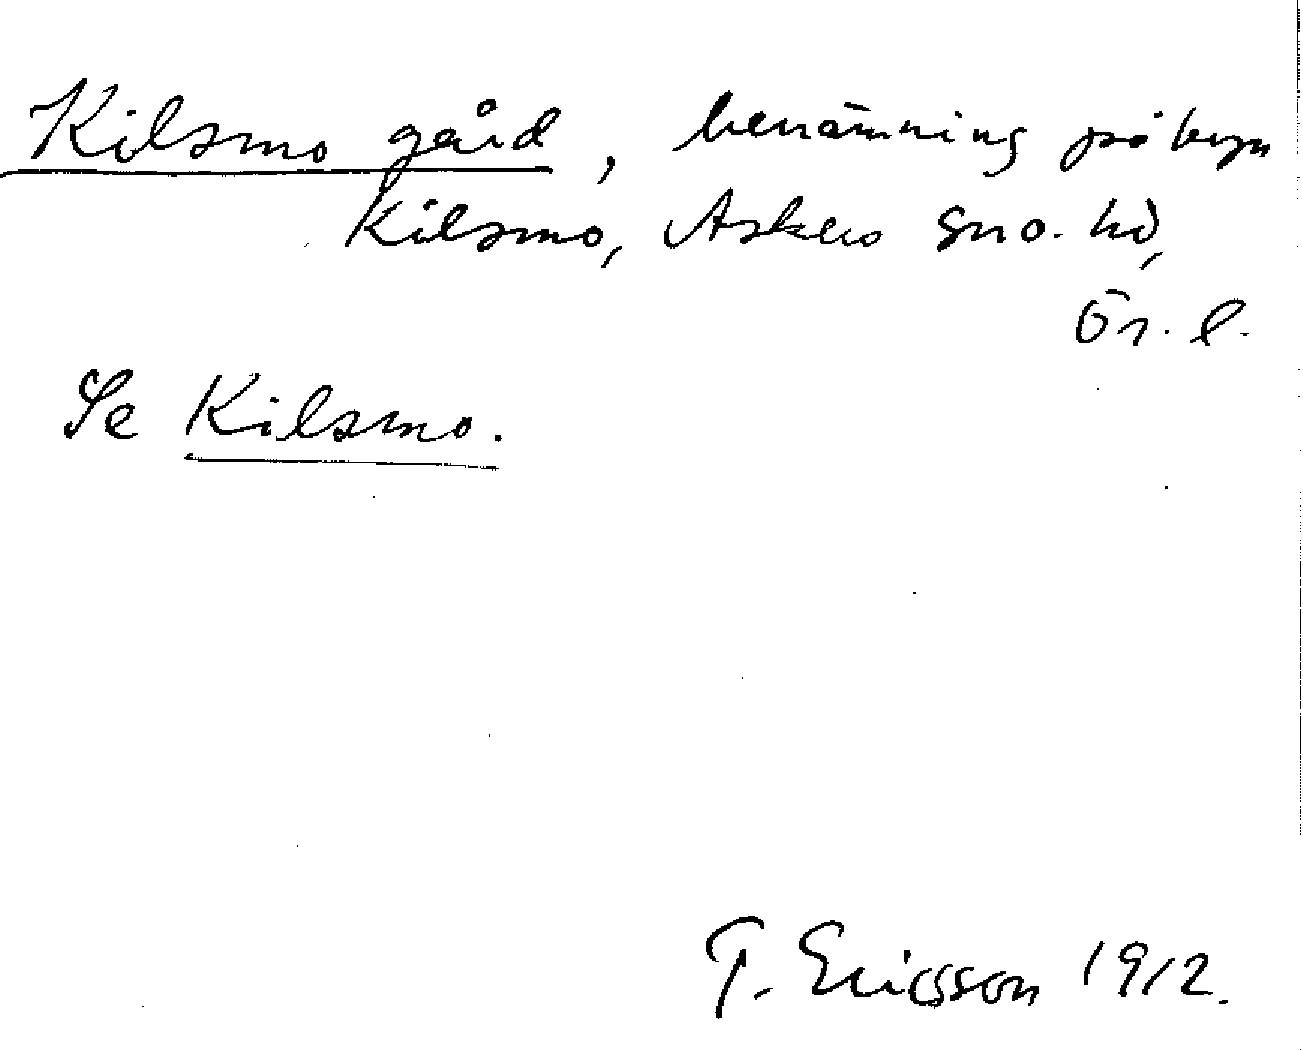 Kilsmo gård, benämning på byn
Kilsmo, Askers sn o. hd,
Ör. l.
Se Kilsmo.
T. Ericsson 1912.